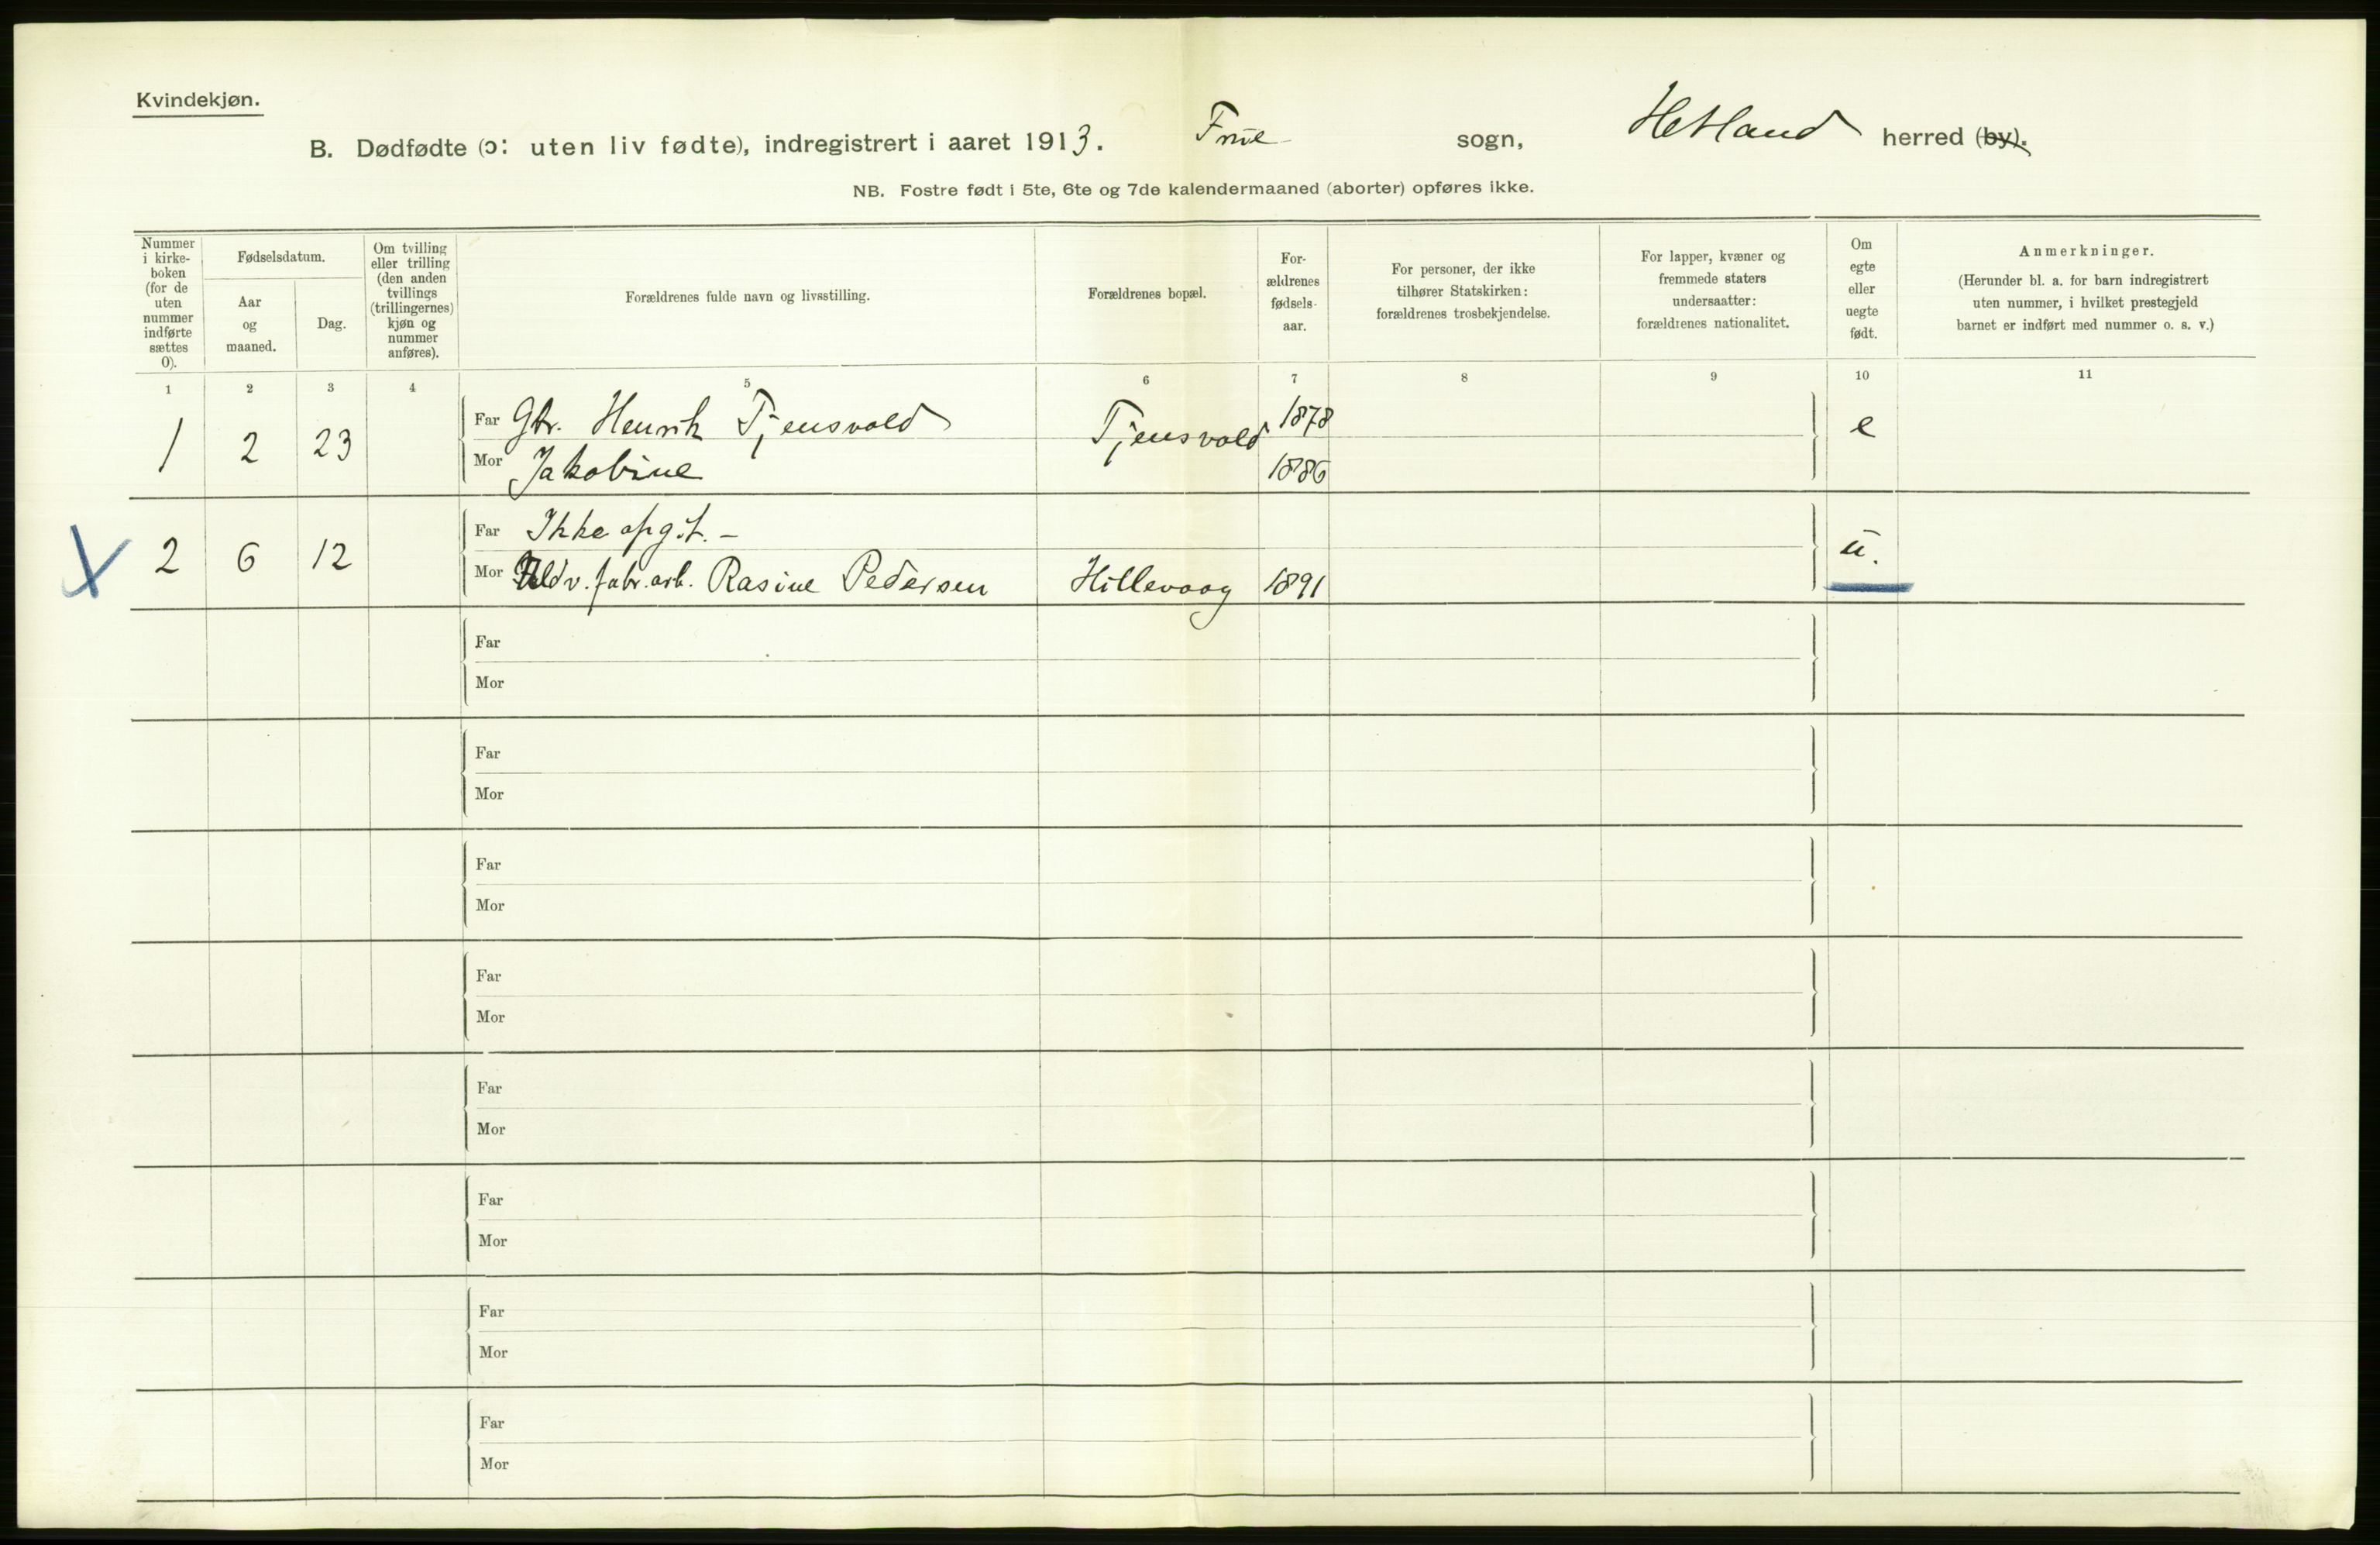 Kvindekjøn.
B. Dødfødte (ɔ: uten liv fødte), indregistrert i aaret 1913. Frue sogn, Hetland herred (by).
NB. Fostre født i 5te, 6te og 7de kalendermaaned (aborter) opføres ikke.
Nummer i kirke-boken (for de uten nummer indførte sættes 0).
Fødselsdatum.
Aar og maaned.
Dag.
Om tvilling eller trilling (den anden tvillings (trillingernes) kjøn og nummer anføres).
Forældrenes fulde navn og livsstilling.
Forældrenes bopæl.
For-ældrenes fødsels-aar.
For personer, der ikke tilhører Statskirken: forældrenes trosbekjendelse.
For lapper, kvæner og fremmede staters undersaatter: forældrenes nationalitet.
Om egte eller uegte født.
Anmerkninger.
(Herunder bl. a. for barn indregistrert uten nummer, i hvilket prestegjeld barnet er indført med nummer o. s. v.)
1 2 3 4 5 6 7 8 9 10 11
1 2 23 Far Gbr. Henrik Tjensvold Tjensvold 1878 e
Mor Jakobine 1886
2 6 12 Far Ikke opgit. - u.
Mor v. fabr. arb. Rasine Pedersen Hillevaag 1891
Far
Mor
Far
Mor
Far
Mor
Far
Mor
Far
Mor
Far
Mor
Far
Mor
Far
Mor